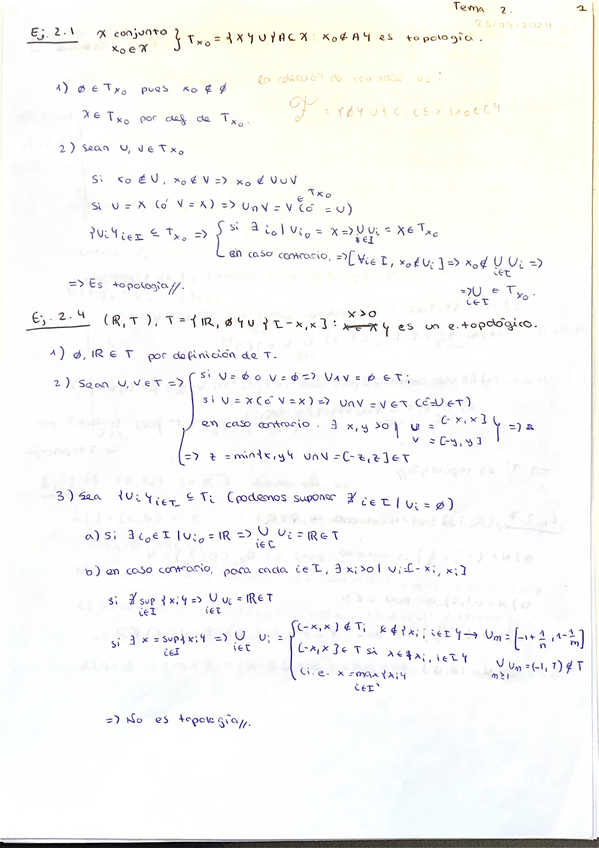 Tema 2. 1
25/09/2024
Ej. 2.1 X conjunto
x₀ ∈ X } T_{x₀} = {X} ∪ {A ⊂ X : x₀ ∉ A} es topología.
la colección de cerrados es:
1) ∅ ∈ T_{x₀} pues x₀ ∉ ∅
F = {∅} ∪ {C ⊂ X | x₀ ∈ C}
X ∈ T_{x₀} por def de T_{x₀}.
2) Sean U, V ∈ T_{x₀}
Si x₀ ∉ U, x₀ ∉ V => x₀ ∉ U∪V
Si U = X (ó V = X) => U∩V = V (ó = U) ∈ T_{x₀}
{Ui}_{i∈I} ⊆ T_{x₀} => { si ∃ i₀ | U_{i₀} = X => ∪_{i∈I} Ui = X ∈ T_{x₀}
en caso contrario, => [∀i∈I, x₀ ∉ Ui] => x₀ ∉ ∪_{i∈I} Ui =>
=> Es topología//. => ∪_{i∈I} ∈ T_{x₀}.
Ej. 2.4 (ℝ, T), T = {ℝ, ∅} ∪ {[-x, x] : x>0} es un e. topológico.
1) ∅, ℝ ∈ T por definición de T.
2) Sean U, V ∈ T => { si U = ∅ o V = ∅ => U∩V = ∅ ∈ T;
si U = X (ó V = X) => U∩V = V ∈ T (ó = U ∈ T)
en caso contrario. ∃ x, y > 0 | U = [-x, x]
V = [-y, y] } =>
=> z = min{x, y} U∩V = [-z, z] ∈ T
3) Sea {Ui}_{i∈I} ⊆ T; (podemos suponer ∄ i∈I | Ui = ∅)
a) Si ∃ i₀ ∈ I | U_{i₀} = ℝ => ∪_{i∈I} Ui = ℝ ∈ T
b) en caso contrario, para cada i∈I, ∃ xi > 0 | Ui [-xi, xi]
si ∄ sup_{i∈I} {xi} => ∪_{i∈I} Ui = ℝ ∈ T
si ∃ x = sup{xi}_{i∈I} => ∪_{i∈I} Ui = { (-x, x) ∉ T; x ∉ {xi, i∈I} → Um = [-1 + 1/n, 1 - 1/m]
[-x, x] ∈ T si x ∈ {xi, i∈I} ∪_{m≥1} Um = (-1, 1) ∉ T
(i.e. x = max{xi}_{i∈I})
=> No es topología//.